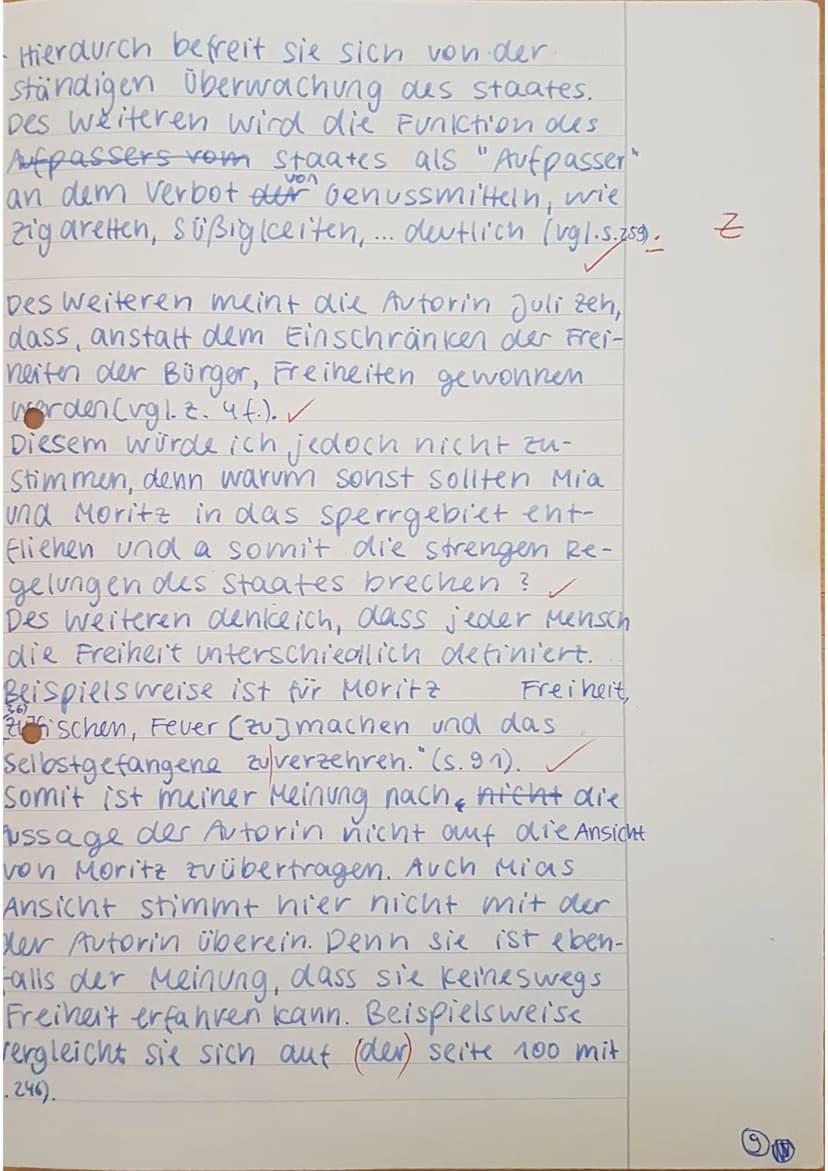 Hierdurch befreit sie sich von der
ständigen Überwachung des Staates.
Des Weiteren wird die Funktion des
Aufpassers vom Staates als "Aufpasser"
von
an dem Verbot der Genussmitteln, wie
Zigaretten, Süßigkeiten, ... deutlich (vgl. S. 259). Z
Des Weiteren meint die Autorin Juli Zeh,
dass, anstatt dem Einschränken der Frei-
heiten der Bürger, Freiheiten gewonnen
werden (vgl. Z. 4 f.).
Diesem würde ich jedoch nicht zu-
stimmen, denn warum sonst sollten Mia
und Moritz in das Sperrgebiet ent-
fliehen und a somit die strengen Re-
gelungen des Staates brechen?
Des Weiteren denke ich, dass jeder Mensch
die Freiheit unterschiedlich definiert.
Beispielsweise ist für Moritz Freiheit,
fischen, Feuer [zu] machen und das
Selbstgefangene zu verzehren." (S. 91).
Somit ist meiner Meinung nach, nicht die
Aussage der Autorin nicht auf die Ansicht
von Moritz zu übertragen. Auch Mias
Ansicht stimmt hier nicht mit der
der Autorin überein. Denn sie ist eben-
falls der Meinung, dass sie keineswegs
Freiheit erfahren kann. Beispielsweise
vergleicht sie sich auf (der) Seite 100 mit
. 246).
9